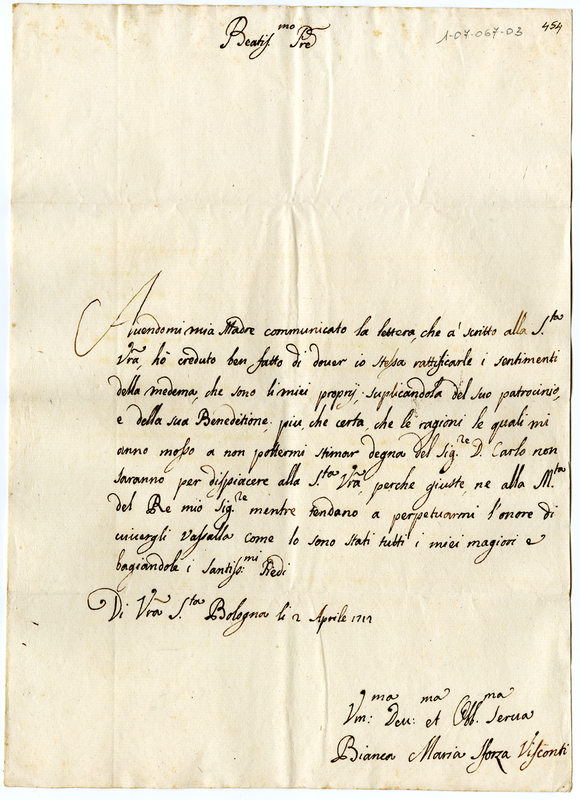 1-07-067-03 454
Beatiss.mo Pre
Auendomi mia Madre communicato la lettera, che a' scritto alla S.ta
Vra, hò creduto ben fatto di douer io stessa rattificarle i sentimenti
della medema, che sono li miei proprij; suplicandola del suo patrocinio,
e della sua Beneditione, piu, che certa, che le ragioni le quali mi
anno mosso a non pottermi stimar degna del Sig.re D. Carlo non
saranno per dispiacere alla S.ta Vra, perche giuste, ne alla M.ta
del Re mio Sig.re mentre tendano a perpetuarmi l'onore di
uiuergli Vassalla come lo sono stati tutti i miei magiori e
bagiandole i santiss:mi Piedi
Di Vra S.ta Bologna li 2 Aprile 1717
Vm:ma Deu:ma et Obb:ma Serua
Bianca Maria Sforza Visconti